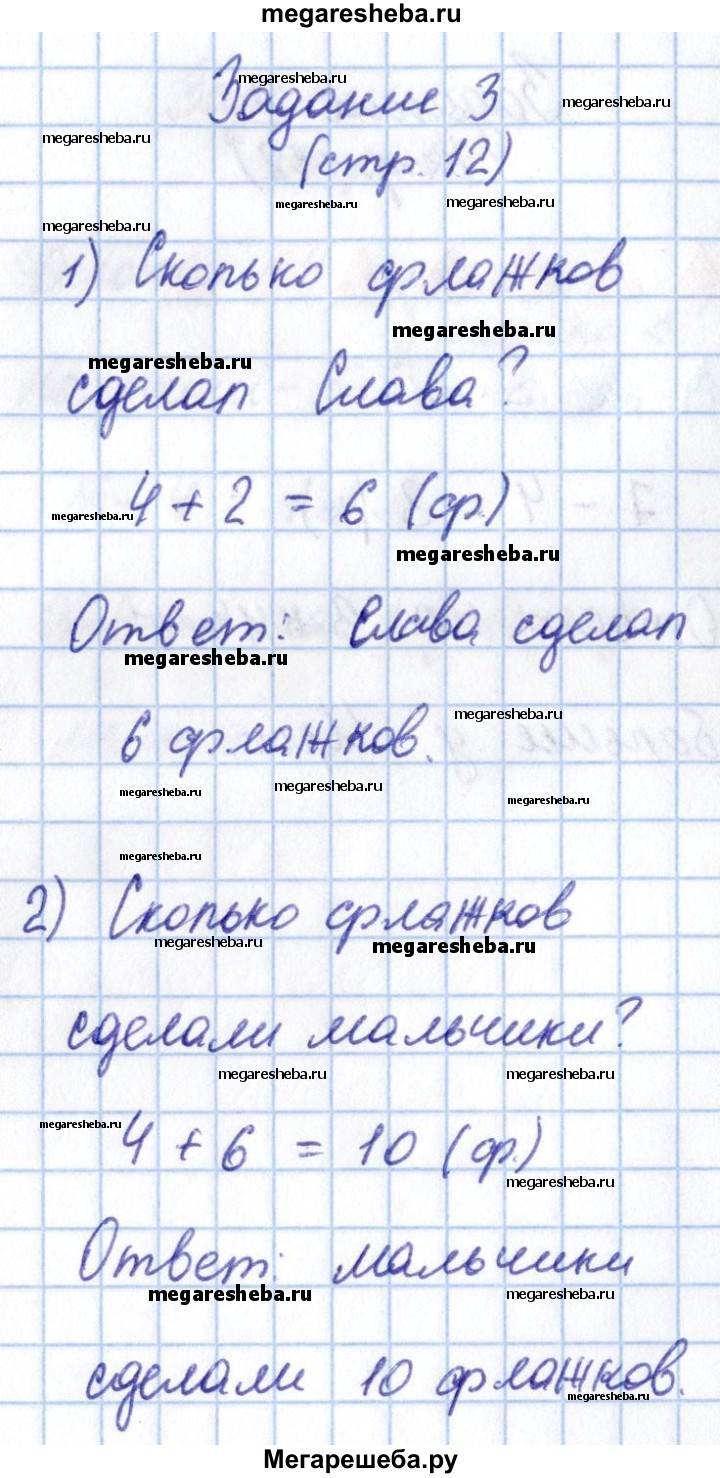 megaresheba.ru
megaresheba.ru
Задание 3
megaresheba.ru
megaresheba.ru
(стр. 12)
megaresheba.ru
megaresheba.ru
megaresheba.ru
1) Сколько флажков
megaresheba.ru
megaresheba.ru
сделал Слава?
4 + 2 = 6 (ф.)
megaresheba.ru
megaresheba.ru
Ответ: Слава сделал
megaresheba.ru
6 флажков.
megaresheba.ru
megaresheba.ru
megaresheba.ru
megaresheba.ru
megaresheba.ru
2) Сколько флажков
megaresheba.ru
megaresheba.ru
сделали мальчики?
megaresheba.ru
megaresheba.ru
megaresheba.ru
4 + 6 = 10 (ф.)
megaresheba.ru
Ответ: мальчики
megaresheba.ru
megaresheba.ru
сделали 10 флажков.
megaresheba.ru
Мегарешеба.ру